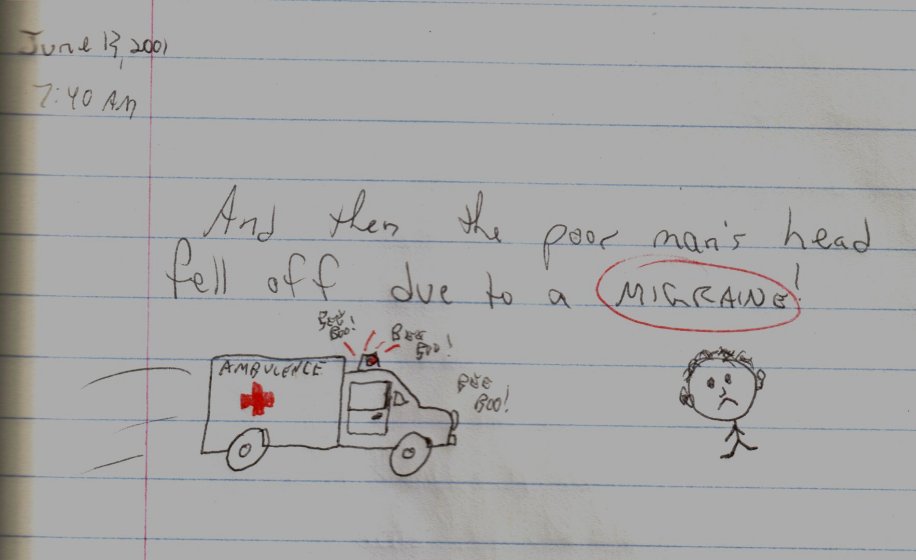 June 13, 2001
7:40 AM
And then the poor man's head
fell off due to a MIGRAINE!
BEE BOO!
BEE BOO!
BEE BOO!
AMBULENCE